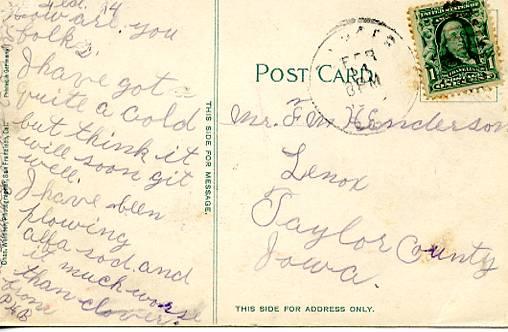 Feb. 14
How are you
folks.
I have got
quite a cold
but think it
will soon git
well.
I have been
plowing
alfa sod. and
is much worse
than clover.
from
PHB
Printed in Germany
San Francisco, Cal.
THIS SIDE FOR MESSAGE.
POST CARD
FEB
14
6 PM
1
1
Mr. F M Henderson
Lenox
Taylor County
Iowa.
THIS SIDE FOR ADDRESS ONLY.